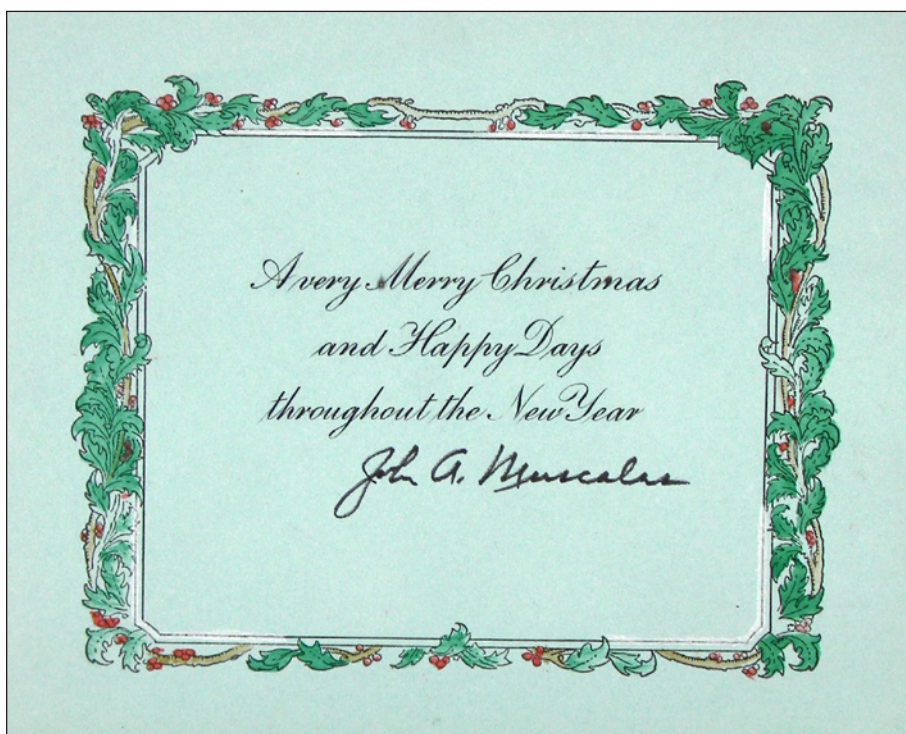 A very Merry Christmas
and Happy Days
throughout the New Year
John A. Muscalus